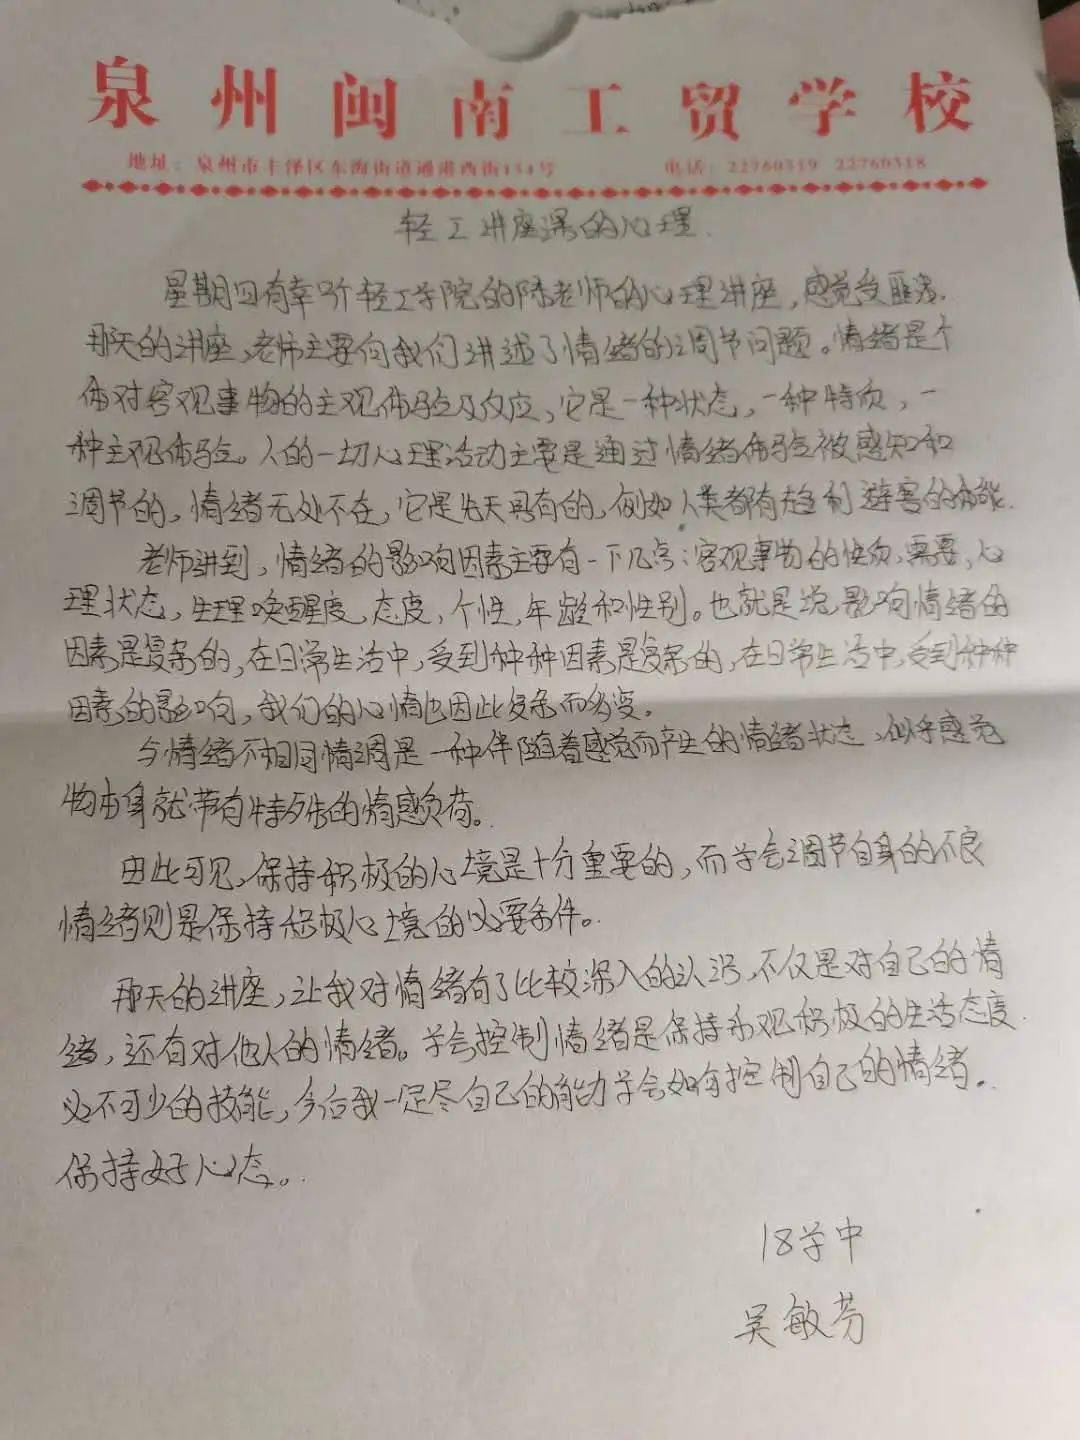 泉州闽南工贸学校
地址：泉州市丰泽区东海街道通港西街134号 电话：22760319 22760318
轻工讲座课的心理
星期四有幸听轻工学院的陈老师的心理讲座，感觉受匪浅.
那天的讲座，老师主要向我们讲述了情绪的调节问题。情绪是个
体对客观事物的主观体验及反应，它是一种状态，一种特质，一
种主观体验。人的一切心理活动主要是通过情绪体验被感知和
调节的，情绪无处不在，它是先天具有的，例如人类都有趋利避害的功能.
老师讲到，情绪的影响因素主要有一下几点：客观事物的性质，需要，心
理状态，生理唤醒度，态度，个性，年龄和性别。也就是说，影响情绪的
因素是复杂的，在日常生活中，受到种种因素是复杂的，在日常生活中，受到种种
因素的影响，我们的心情也因此复杂而多变。
与情绪不相同情调是一种伴随着感觉而产生的情绪状态，似乎感觉
物本身就带有特殊的情感负荷。
由此可见，保持积极的心境是十分重要的，而学会调节自身的不良
情绪则是保持积极心境的必要条件。
那天的讲座，让我对情绪有了比较深入的认识，不仅是对自己的情
绪，还有对他人的情绪。学会控制情绪是保持乐观积极的生活态度
必不可少的技能，今后我一定尽自己的能力学会如何控制自己的情绪。
保持好心态。
18学中
吴敏芳